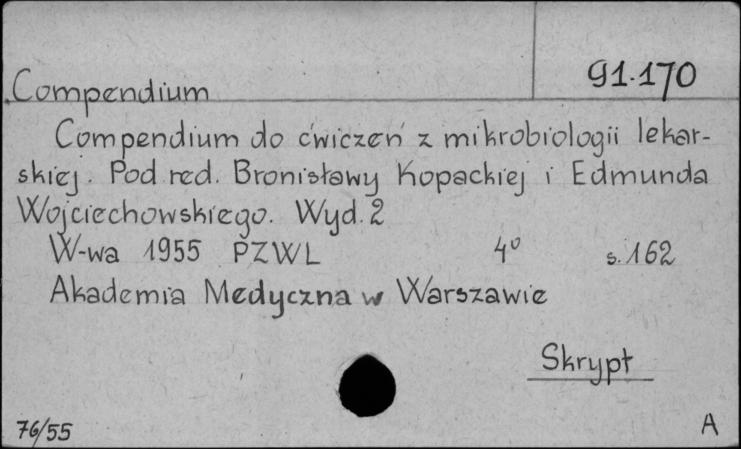 91.170
Compendium
Compendium do ćwiczeń z mikrobiologii lekar-
skiej. Pod red. Bronisławy Kopackiej i Edmunda
Wojciechowskiego. Wyd. 2
W-wa 1955 PZWL 4⁰ s. 162
Akademia Medyczna w Warszawie
Skrypt
76/55 A